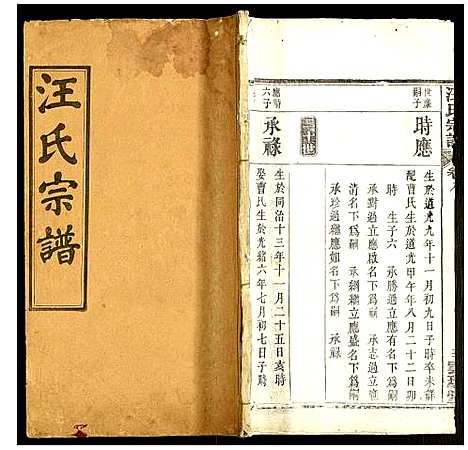 汪氏宗譜
汪氏宗譜
世蔡
嗣子
時應
生於道光九年十一月初九日子時卒未詳
配曹氏生於道光甲午年八月二十二日卯
時 生子六 承勝過立應有名下爲嗣
承對過立應啟名下爲嗣 承志過立應
清名下爲嗣 承綱繼立應盛名下爲嗣
承珍過繼應如名下爲嗣 承祿
應時
六子
承祿
生於同治十三年十一月二十五日亥時
娶曹氏生於光緒六年七月初七日子時